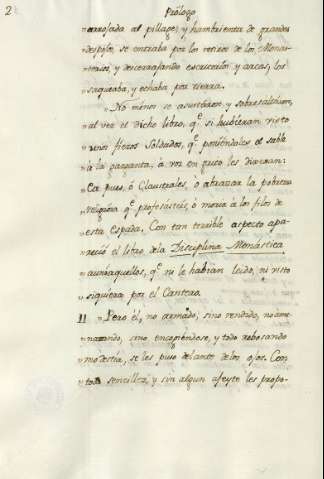 2
Prólogo
"arrojada al pillage, y hambrienta de grandes
"despojos, se entraba por los retiros de los Monas-
"terios, y descerrajando escritorios, y arcas, los
"saqueaba, y echaba por tierra.
"No menos se asustáron, y sobresaltáron,
"al ver el dicho libro, q.e si hubieran visto
"unos fieros Soldados, q.e poniéndoles el sable
"à la garganta, à voz en grito les dixeran:
"Ea pues, ó Claustrales, ò abrazar la pobreza
"religiosa q.e profesasteis, ò morir à los filos de
"esta espada. Con tan terrible aspecto apa-
"reció el libro dela Disciplina Monástica
"aun à aquellos, q.e ni le habian leido, ni visto
"siquiera por el Cantero.
11 "Pero èl, no armado, sino rendido, no ame-
"nazando, sino encogiéndose, y todo rebosando
"modestia, se les puso delante de los ojos. Con
"toda sencillez, y sin algun afeyte les propo-